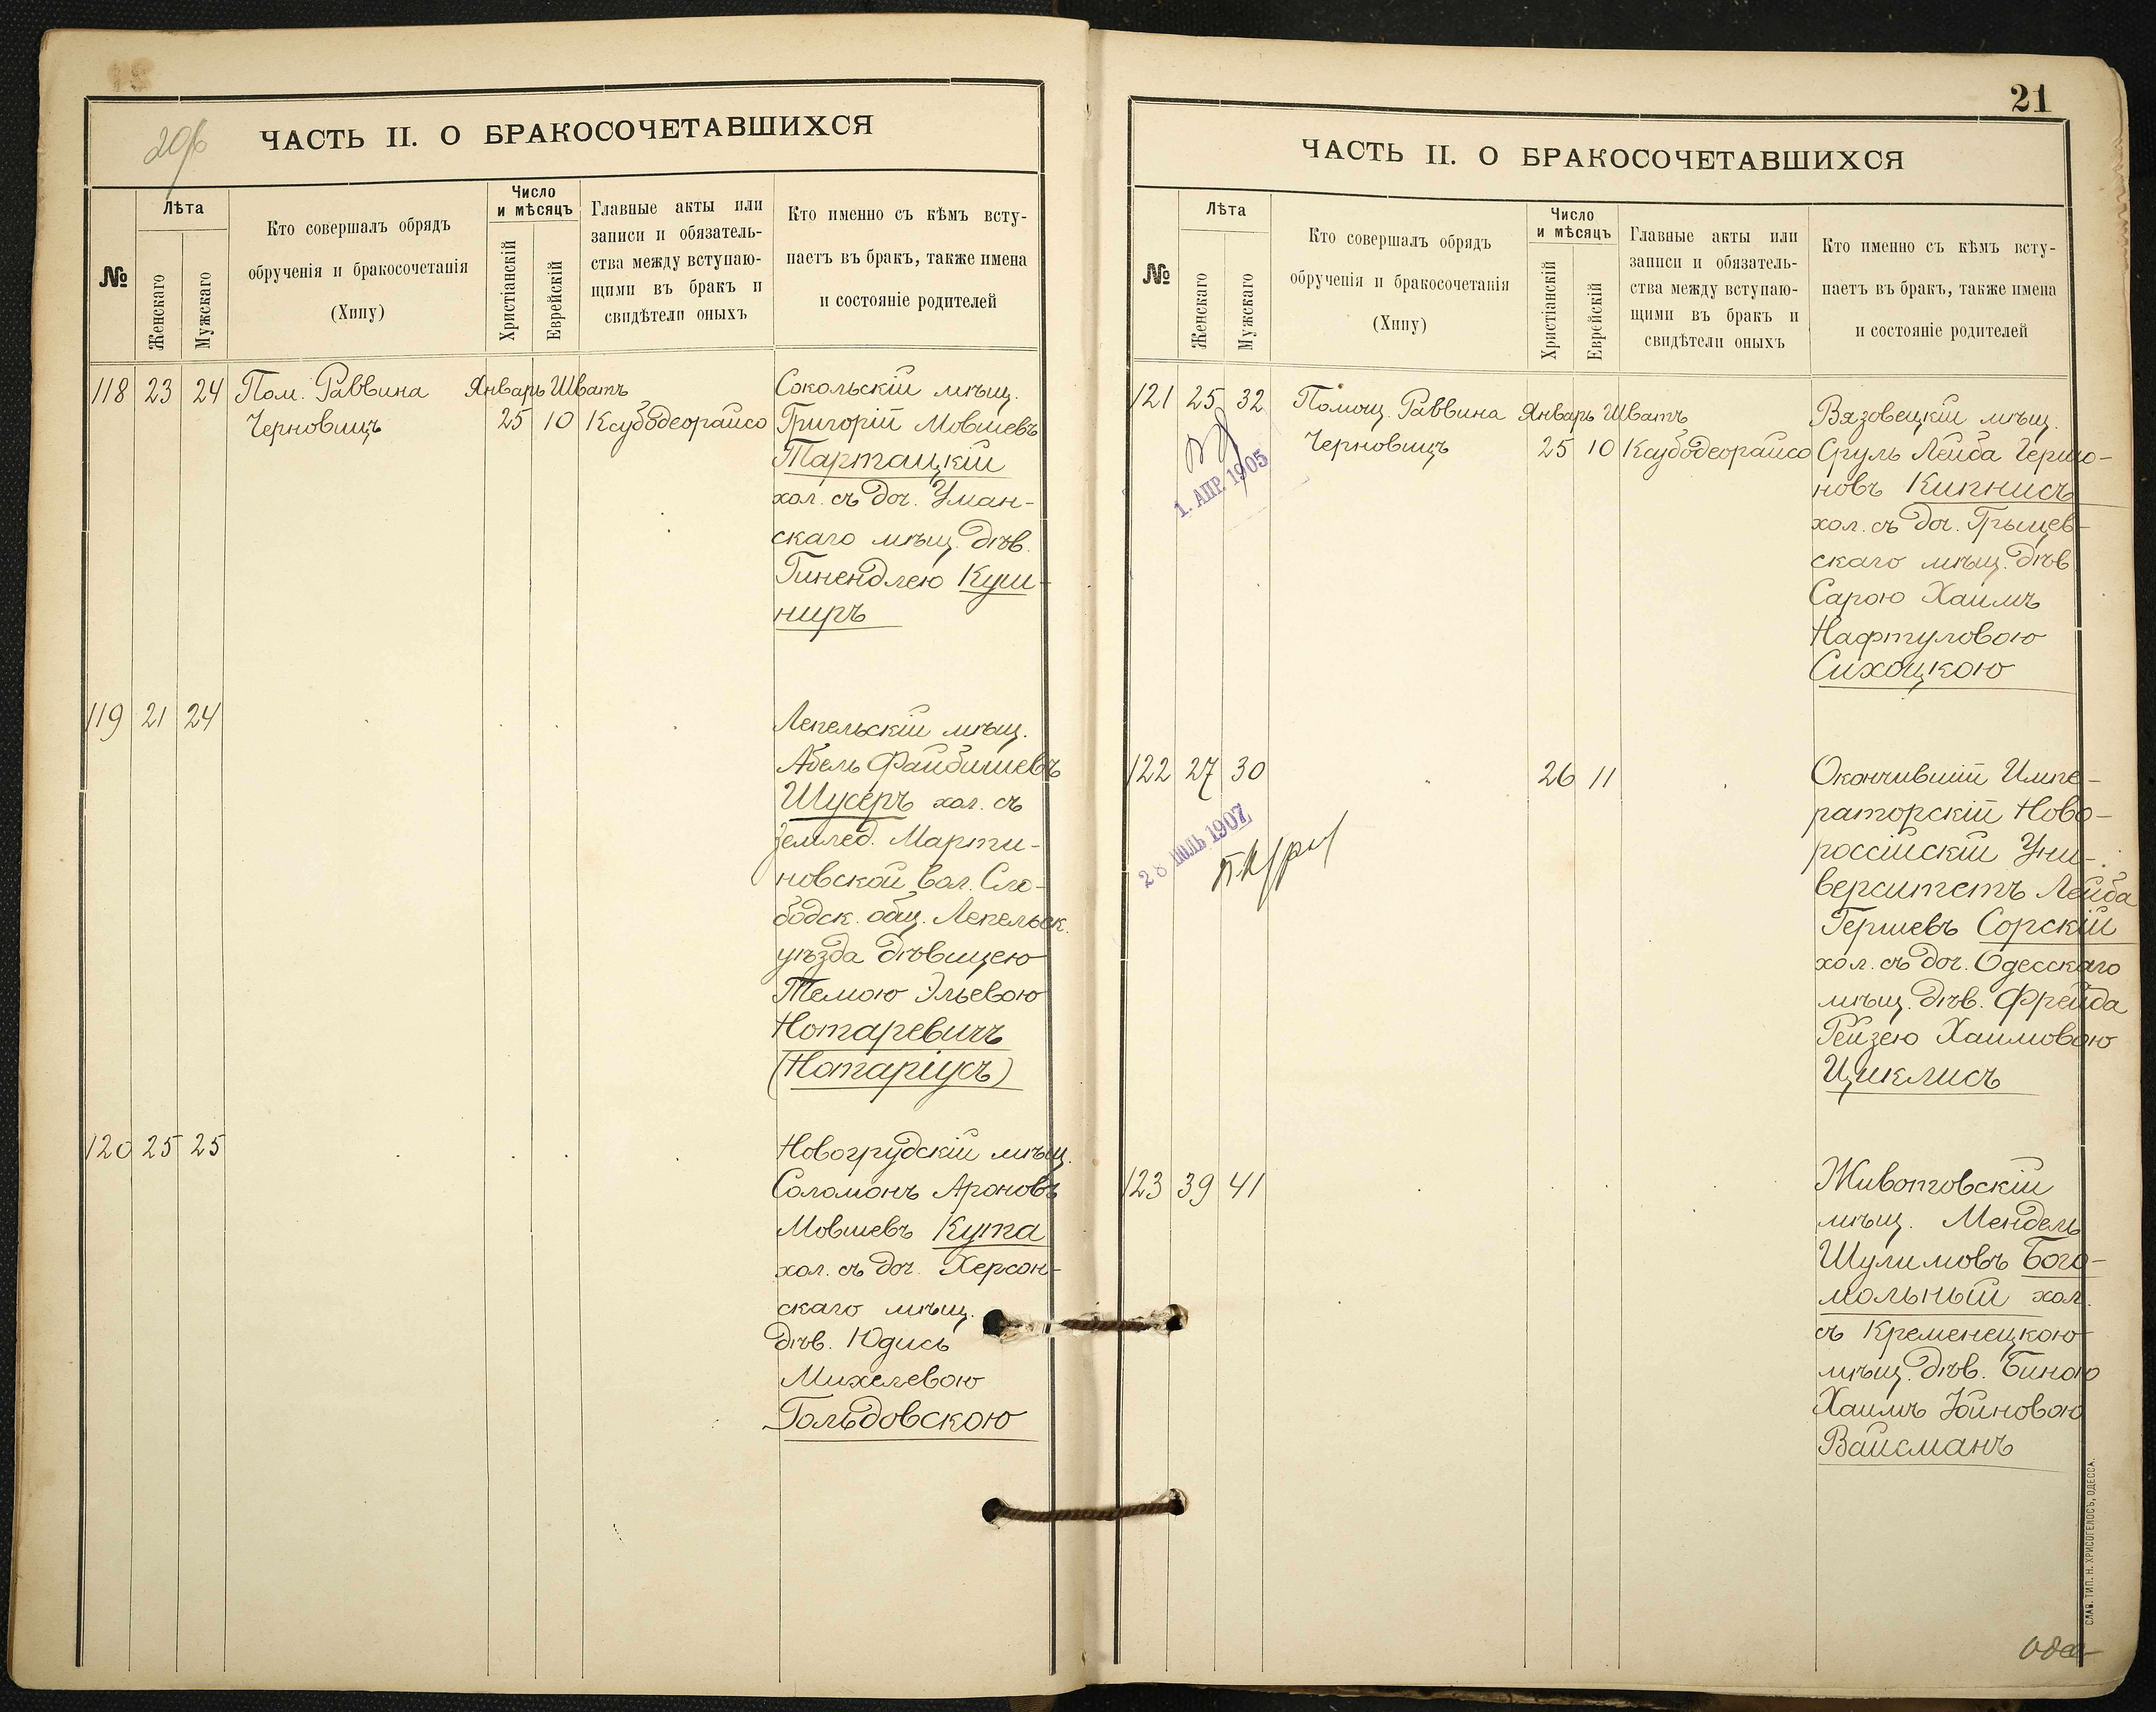 20б
ЧАСТЬ II. О БРАКОСОЧЕТАВШИХСЯ
№
Лѣта
Женскаго
Мужскаго
Кто совершалъ обрядъ
обрученія и бракосочетанія
(Хипу)
Число
и мѣсяцъ
Христіанскій
Еврейскій
Главные акты или
записи и обязатель-
ства между вступаю-
щими въ бракъ и
свидѣтели оныхъ
Кто именно съ кѣмъ всту-
паетъ въ бракъ, также имена
и состояніе родителей
118 23 24 Пом. Раввина Январь Шватъ
Черновицъ 25 10 Ксубодеорайсо
Сокольскій мѣщ.
Григорій Мовшевъ
Тартацкій
хол. съ доч. Уман-
скаго мѣщ. дѣв.
Гинендлею Куш-
ниръ
119 21 24
Лепельскій мѣщ.
Абель Файбишевъ
Шусеръ хол. съ
землед. Марти-
новской вол. Сло-
бодск. общ. Лепельск.
уѣзда дѣвицею
Темою Эльевою
Нотаревичъ
(Нотаріусъ)
120 25 25
Новогрудскій мѣщ.
Соломонъ Ароновъ
Мовшевъ Кута
хол. съ доч. Херсон-
скаго мѣщ.
дѣв. Юдись
Михелевою
Гольдовскою
21
ЧАСТЬ II. О БРАКОСОЧЕТАВШИХСЯ
№
Лѣта
Женскаго
Мужскаго
Кто совершалъ обрядъ
обрученія и бракосочетанія
(Хипу)
Число
и мѣсяцъ
Христіанскій
Еврейскій
Главные акты или
записи и обязатель-
ства между вступаю-
щими въ бракъ и
свидѣтели оныхъ
Кто именно съ кѣмъ всту-
паетъ въ бракъ, также имена
и состояніе родителей
121 25 32 Помощ. Раввина Январь Шватъ
Черновицъ 25 10 Ксубодеорайсо
1. АПР. 1905
Вязовецкій мѣщ.
Сруль Лейба Гершо-
новъ Кипнисъ
хол. съ доч. Грыцев-
скаго мѣщ. дѣв.
Сарою Хаимъ
Нафтуловою
Сихоцкою
122 27 30 26 11
28 ІЮЛЬ 1907
Окончившій Импе-
раторскій Ново-
россійскій Уни-
верситетъ Лейба
Гершевъ Сорскій
хол. съ доч. Одесскаго
мѣщ. дѣв. Фрейда
Рейзею Хаимовою
Циклисъ
123 39 41
Животовскій
мѣщ. Мендель
Шулимовъ Бого-
мольный хол.
съ Кременецкою
мѣщ. дѣв. Биною
Хаимъ Іойновою
Вайсманъ
СЛАВ. ТИП. Н. ХРИСОГЕЛОСЪ, ОДЕССА.